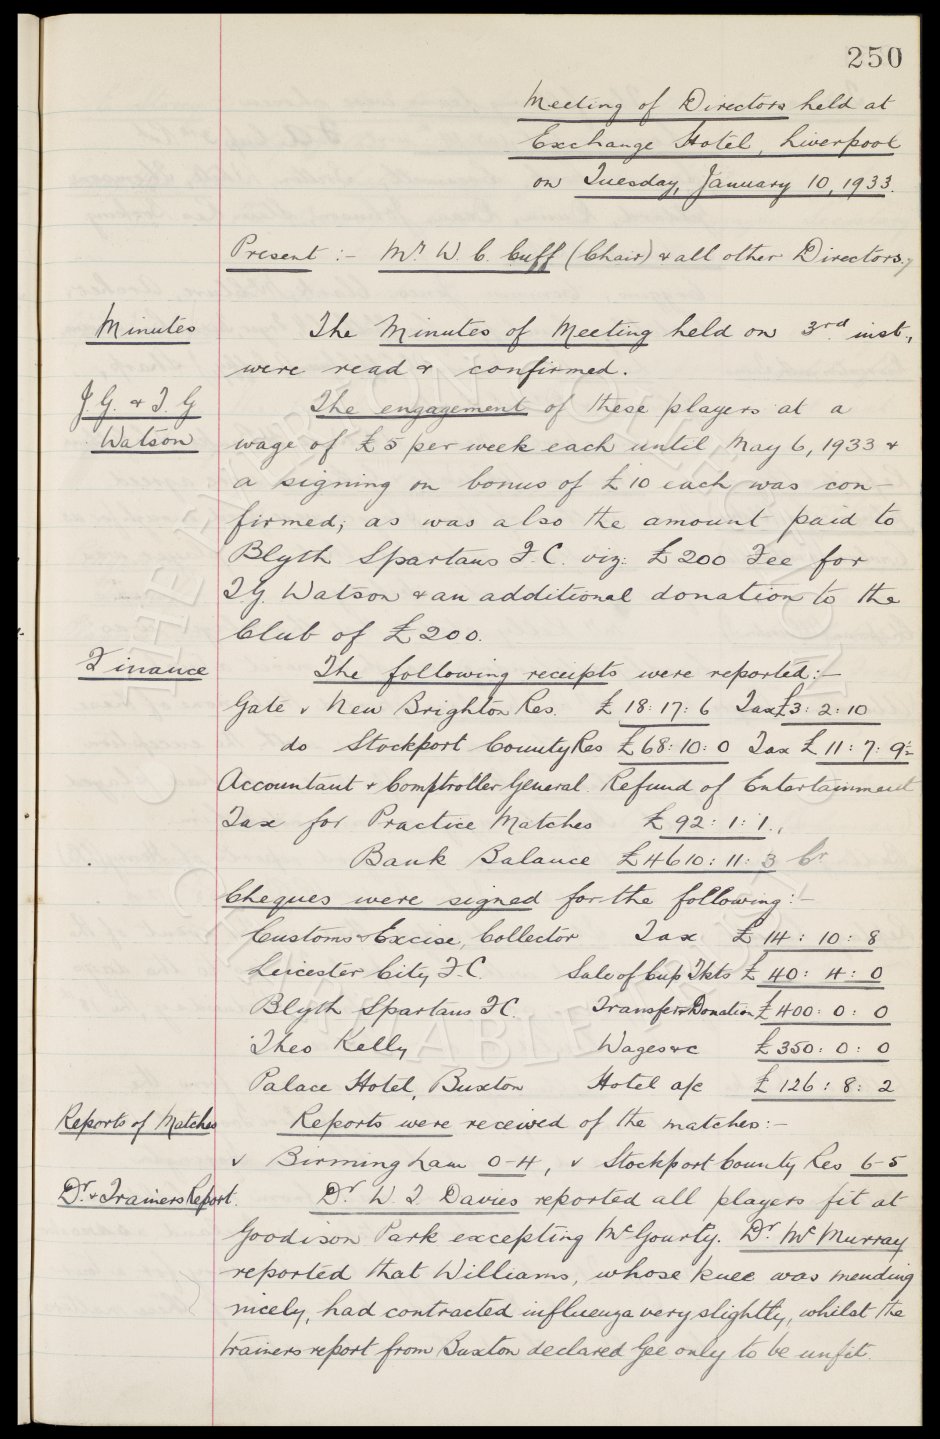 250
Meeting of Directors held at
Exchange Hotel, Liverpool
on Tuesday, January 10, 1933.
Present :- Mr. W. C. Cuff (Chair) & all other Directors.
Minutes
The Minutes of Meeting held on 3rd inst.,
were read & confirmed.
J.G. & T.G
Watson
The engagement of these players at a
wage of £5 per week each until May 6, 1933 &
a signing on bonus of £10 each was con-
firmed; as was also the amount paid to
Blyth Spartans F.C. viz: £200 Fee for
T.G. Watson & an additional donation to the
Club of £200.
Finance
The following receipts were reported:-
Gate v New Brighton Res. £18:17:6 Tax £3:2:10
do Stockport County Res £68:10:0 Tax £11:7:9½
Accountant & Comptroller General. Refund of Entertainment
Tax for Practice Matches £92:1:1.,
Bank Balance £4610:11:3 Cr
Cheques were signed for the following:-
Customs & Excise, Collector Tax £14:10:8
Leicester City F.C. Sale of Cup Tkts £40:4:0
Blyth Spartans F.C. Transfer & Donation £400:0:0
Theo Kelly Wages &c £350:0:0
Palace Hotel, Buxton Hotel a/c £126:8:2
Reports of Matches
Reports were received of the matches:-
v Birmingham 0-4, v Stockport County Res 6-5
Dr. & Trainers Report.
Dr. W. T. Davies reported all players fit at
Goodison Park excepting McGourty. Dr. McMurray
reported that Williams, whose knee was mending
nicely, had contracted influenza very slightly, whilst the
trainers report from Buxton declared Gee only to be unfit.